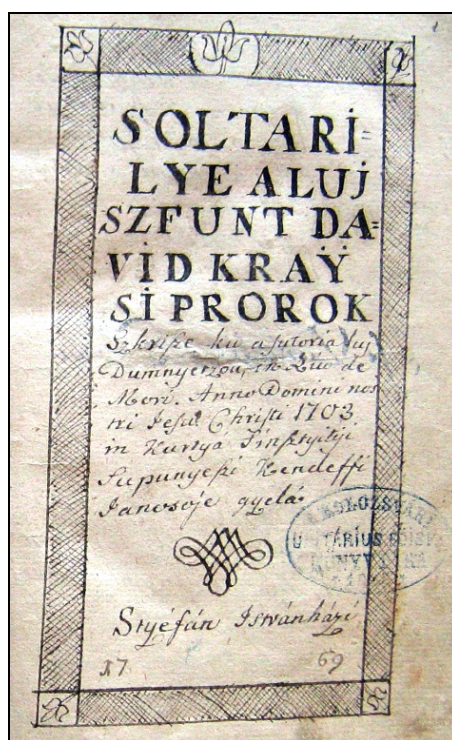 SOLTARI=
LYE ALUJ
SZFUNT DA=
VID KRAŸ
SI PROROK
Szkrisze ku asutoria luj
Dumnyezou, in Ziu de
Meri. Anno Domini nos
tri Jesu Christi 1703
in Kurtyá
Supunyeszi Kendeffi
Janosoje gyelá
KOLOZSVÁRI
UNITÁRIUS
KÖNYVTÁRA
Styéfán Istvánházi
17 69